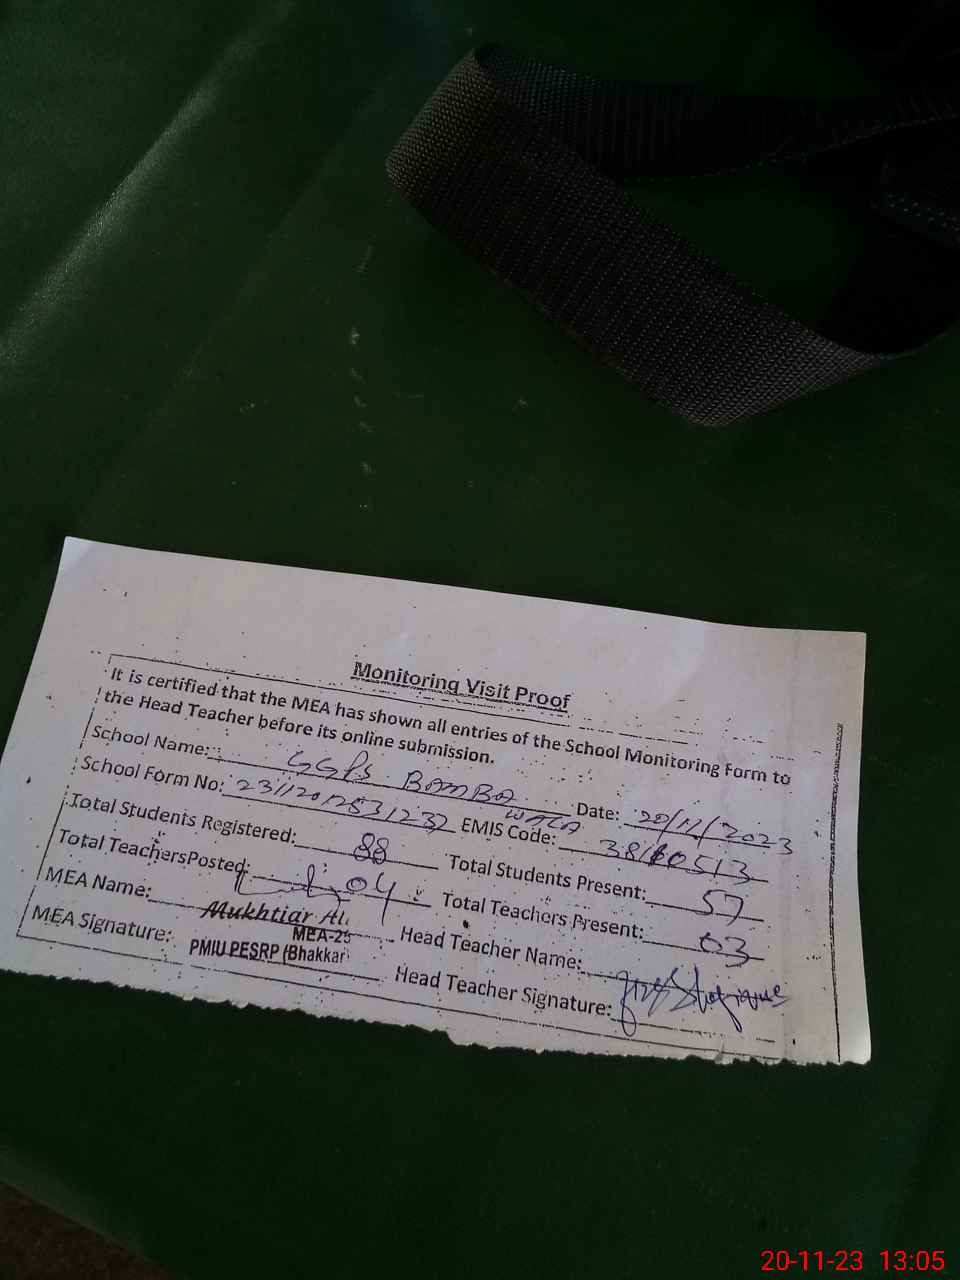 Monitoring Visit Proof
It is certified that the MEA has shown all entries of the School Monitoring Form to
the Head Teacher before its online submission.
School Name: GGPS BAMBA WALA Date: 20/11/2023
School Form No: EMIS Code:
Total Students Registered: 88 Total Students Present: 57
Total TeachersPosted: 04 Total Teachers Present: 03
MEA Name: Mukhtiar Ali Head Teacher Name:
MEA-25
MEA Signature: PMIU PESRP (Bhakkar) Head Teacher Signature:
20-11-23 13:05